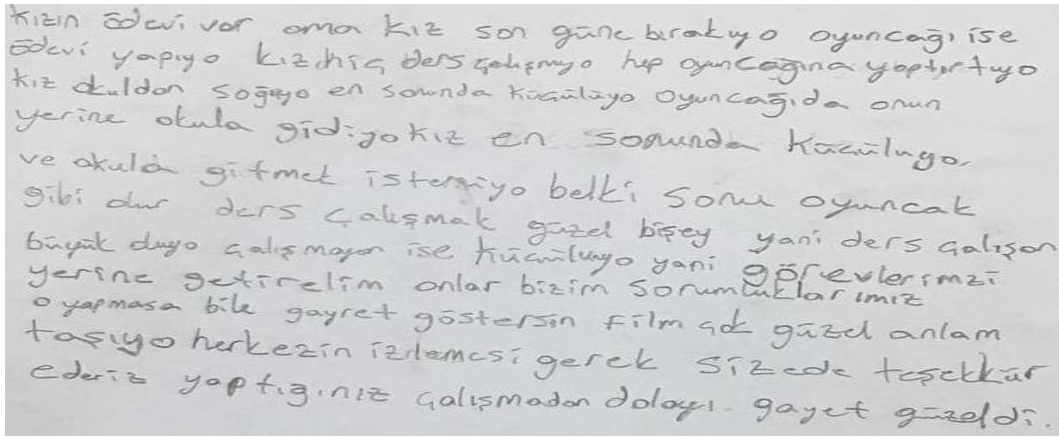 Kızın ödevi var ama kız son güne bırakıyo oyuncağı ise
ödevi yapıyo kızhiç ders çalışmıyo hep oyuncağına yaptırtıyo
kız okuldan soğuyo en sonunda küçülüyo oyuncağıda onun
yerine okula gidiyo kız en sonunda küçülüyo.
ve okula gitmek istemiyo belki sonu oyuncak
gibi olur ders çalışmak güzel bişey yani ders çalışan
büyük oluyo çalışmayan ise küçülüyo yani görevlerimzi
yerine getirelim onlar bizim sorumluluklarımız
o yapmasa bile gayret göstersin film çok güzel anlam
taşıyo herkezin izlemesi gerek sizede teşekkür
ederiz yaptığınız çalışmadan dolayı. gayet güzeldi.